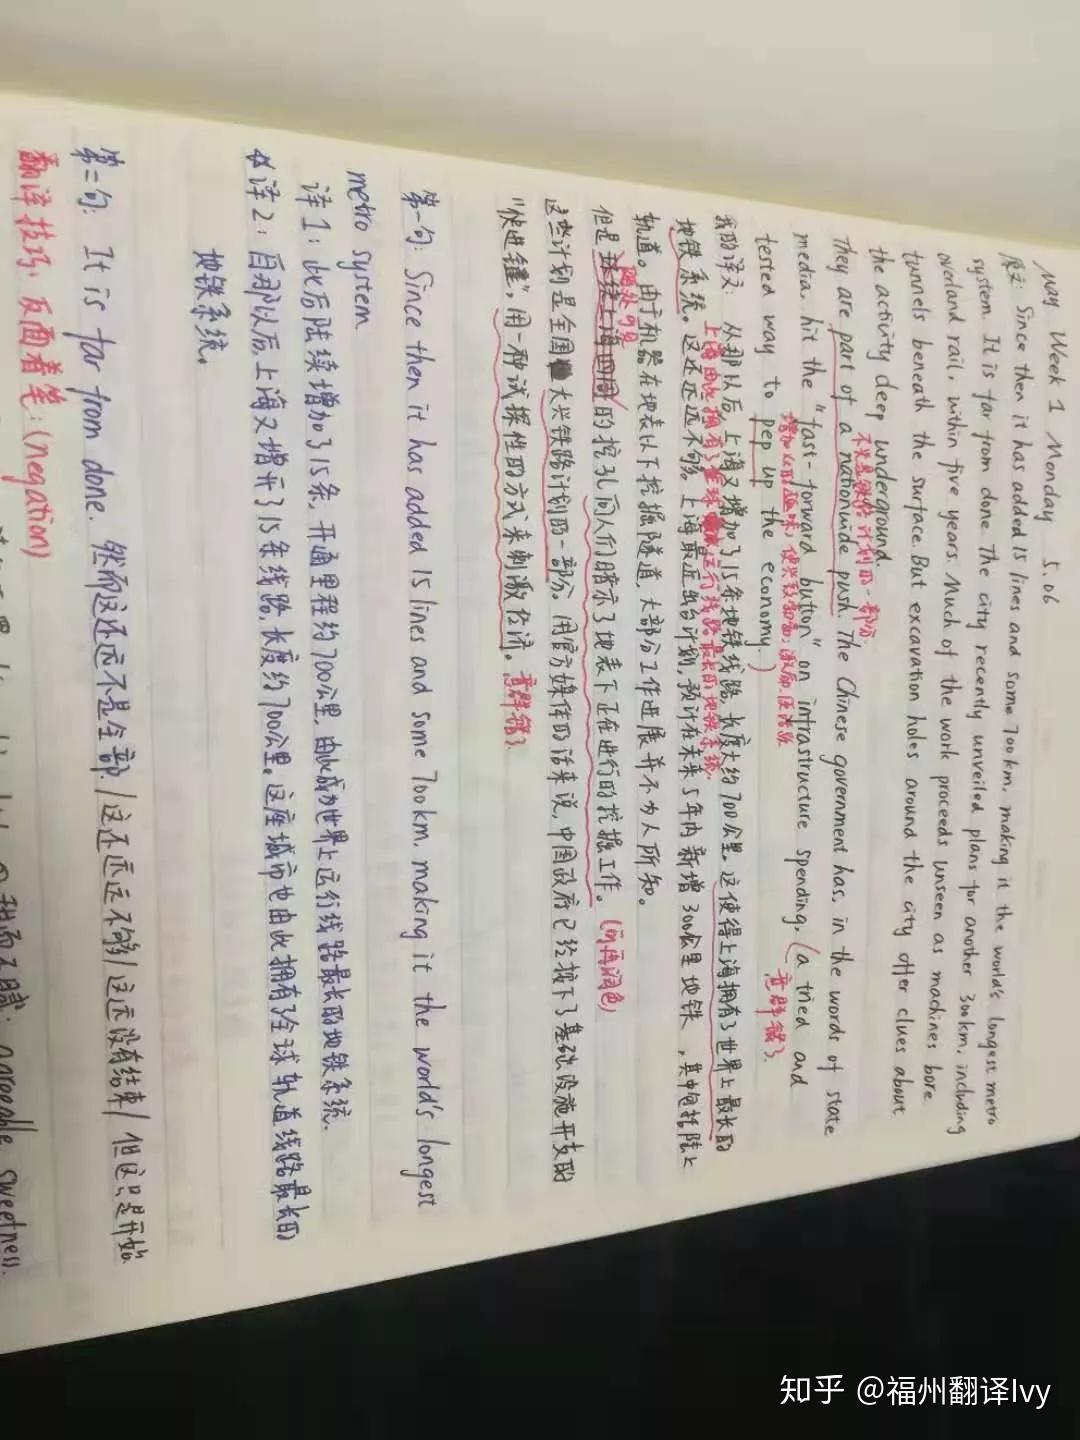 May Week 1 Monday 5.06
原文: Since then it has added 15 lines and some 700km, making it the world's longest metro
system. It is far from done. The city recently unveiled plans for another 300km, including
overland rail, within five years. Much of the work proceeds unseen as machines bore
tunnels beneath the surface. But excavation holes around the city offer clues about
the activity deep underground.
不只是铁路计划的一部分
They are part of a nationwide push. The Chinese government has, in the words of state
media, hit the "fast-forward button" on infrastructure spending, (a tried and
意群错?
tested way to pep up the economy.)
我的译文: 从那以后,上海又增加了15条地铁线路,长度大约700公里。这使得上海拥有了世界上最长的
地铁系统。这还远远不够。上海最近出台计划,预计在未来5年内新增300公里地铁,其中包括陆上
轨道。由于机器在地表以下挖掘隧道,大部分工作进展并不为人所知。
随处可见
但是环绕上海四周的挖孔向人们暗示了地表下正在进行的挖掘工作。(可再润色)
这些计划是全国大兴铁路计划的一部分,用官方媒体的话来说,中国政府已经按下了基础设施开支的
"快进键",用一种试探性的方式来刺激经济。意群错?
第一句: Since then it has added 15 lines and some 700km, making it the world's longest
metro system
译1: 此后陆续增加了15条,开通里程约700公里,由此成为世界上运行线路最长的地铁系统.
译2: 自那以后,上海又增开了15条线路,长度约700公里。这座城市也由此拥有了全球轨道线路最长的
地铁系统。
第二句: It is far from done. 然而这还远不是全部/这还远远不够/这远没有结束/但这只是开始
翻译技巧: 反面着笔: (negation)
agreeable sweetness.
知乎 @福州翻译Ivy